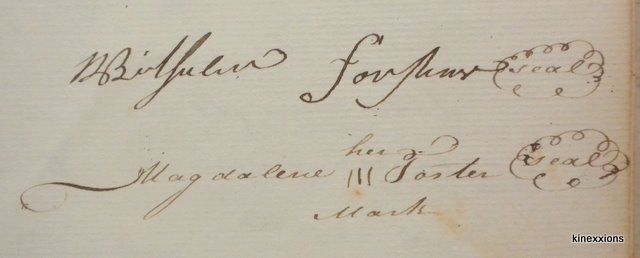 Wilhelm Forster seal
her
Magdalene III Forster seal
Mark
kinexxions